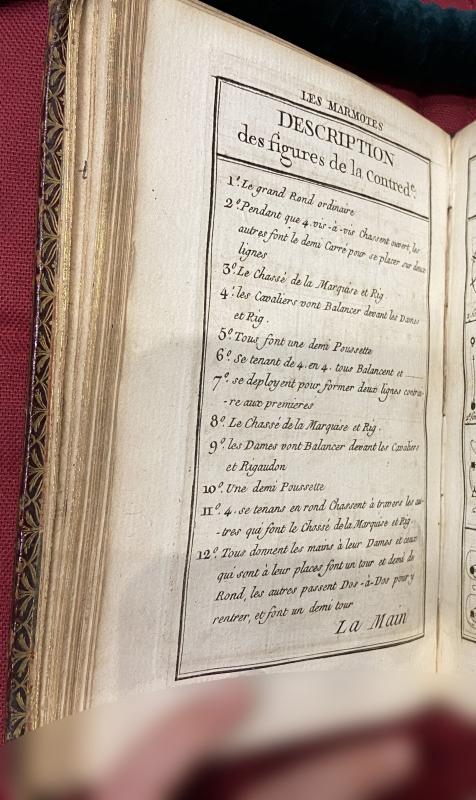 LES MARMOTES
DESCRIPTION
des figures de la Contred.e
1.º Le grand Rond ordinaire
2.º Pendant que 4. vis-à-vis Chassent ouvert, les
autres font le demi Carré pour se placer sur deux
lignes
3.º Le Chassé de la Marquise et Rig.
4.º les Cavaliers vont Balancer devant les Dames
et Rig.
5.º Tous font une demi Poussette
6.º Se tenant de 4. en 4. tous Balancent et
7.º se deployent pour former deux lignes contrai-
-re aux premieres
8.º Le Chassé de la Marquise et Rig.
9.º les Dames vont Balancer devant les Cavaliers
et Rigaudon
10.º Une demi Poussette
11.º 4. se tenans en rond Chassent à travers les au-
-tres qui font le Chassé de la Marquise et Rig.
12.º Tous donnent les mains à leur Dames et ceux
qui sont à leur places font un tour et demi de
Rond, les autres passent Dos-à-Dos pour y
rentrer, et font un demi tour
La Main